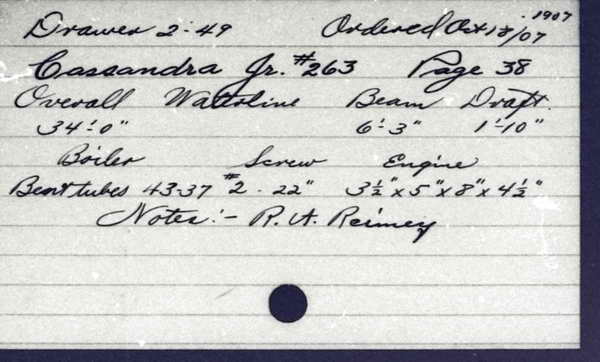 Drawer 2-49 Ordered Oct 18/07 1907
Cassandra Jr. #263 Page 38
Overall Waterline Beam Draft.
34'-0" 6'-3" 1'-10"
Boiler Screw Engine
Bent tubes 43-37 #2 - 22" 3½" x 5" x 8" x 4½"
Notes:- R. A.